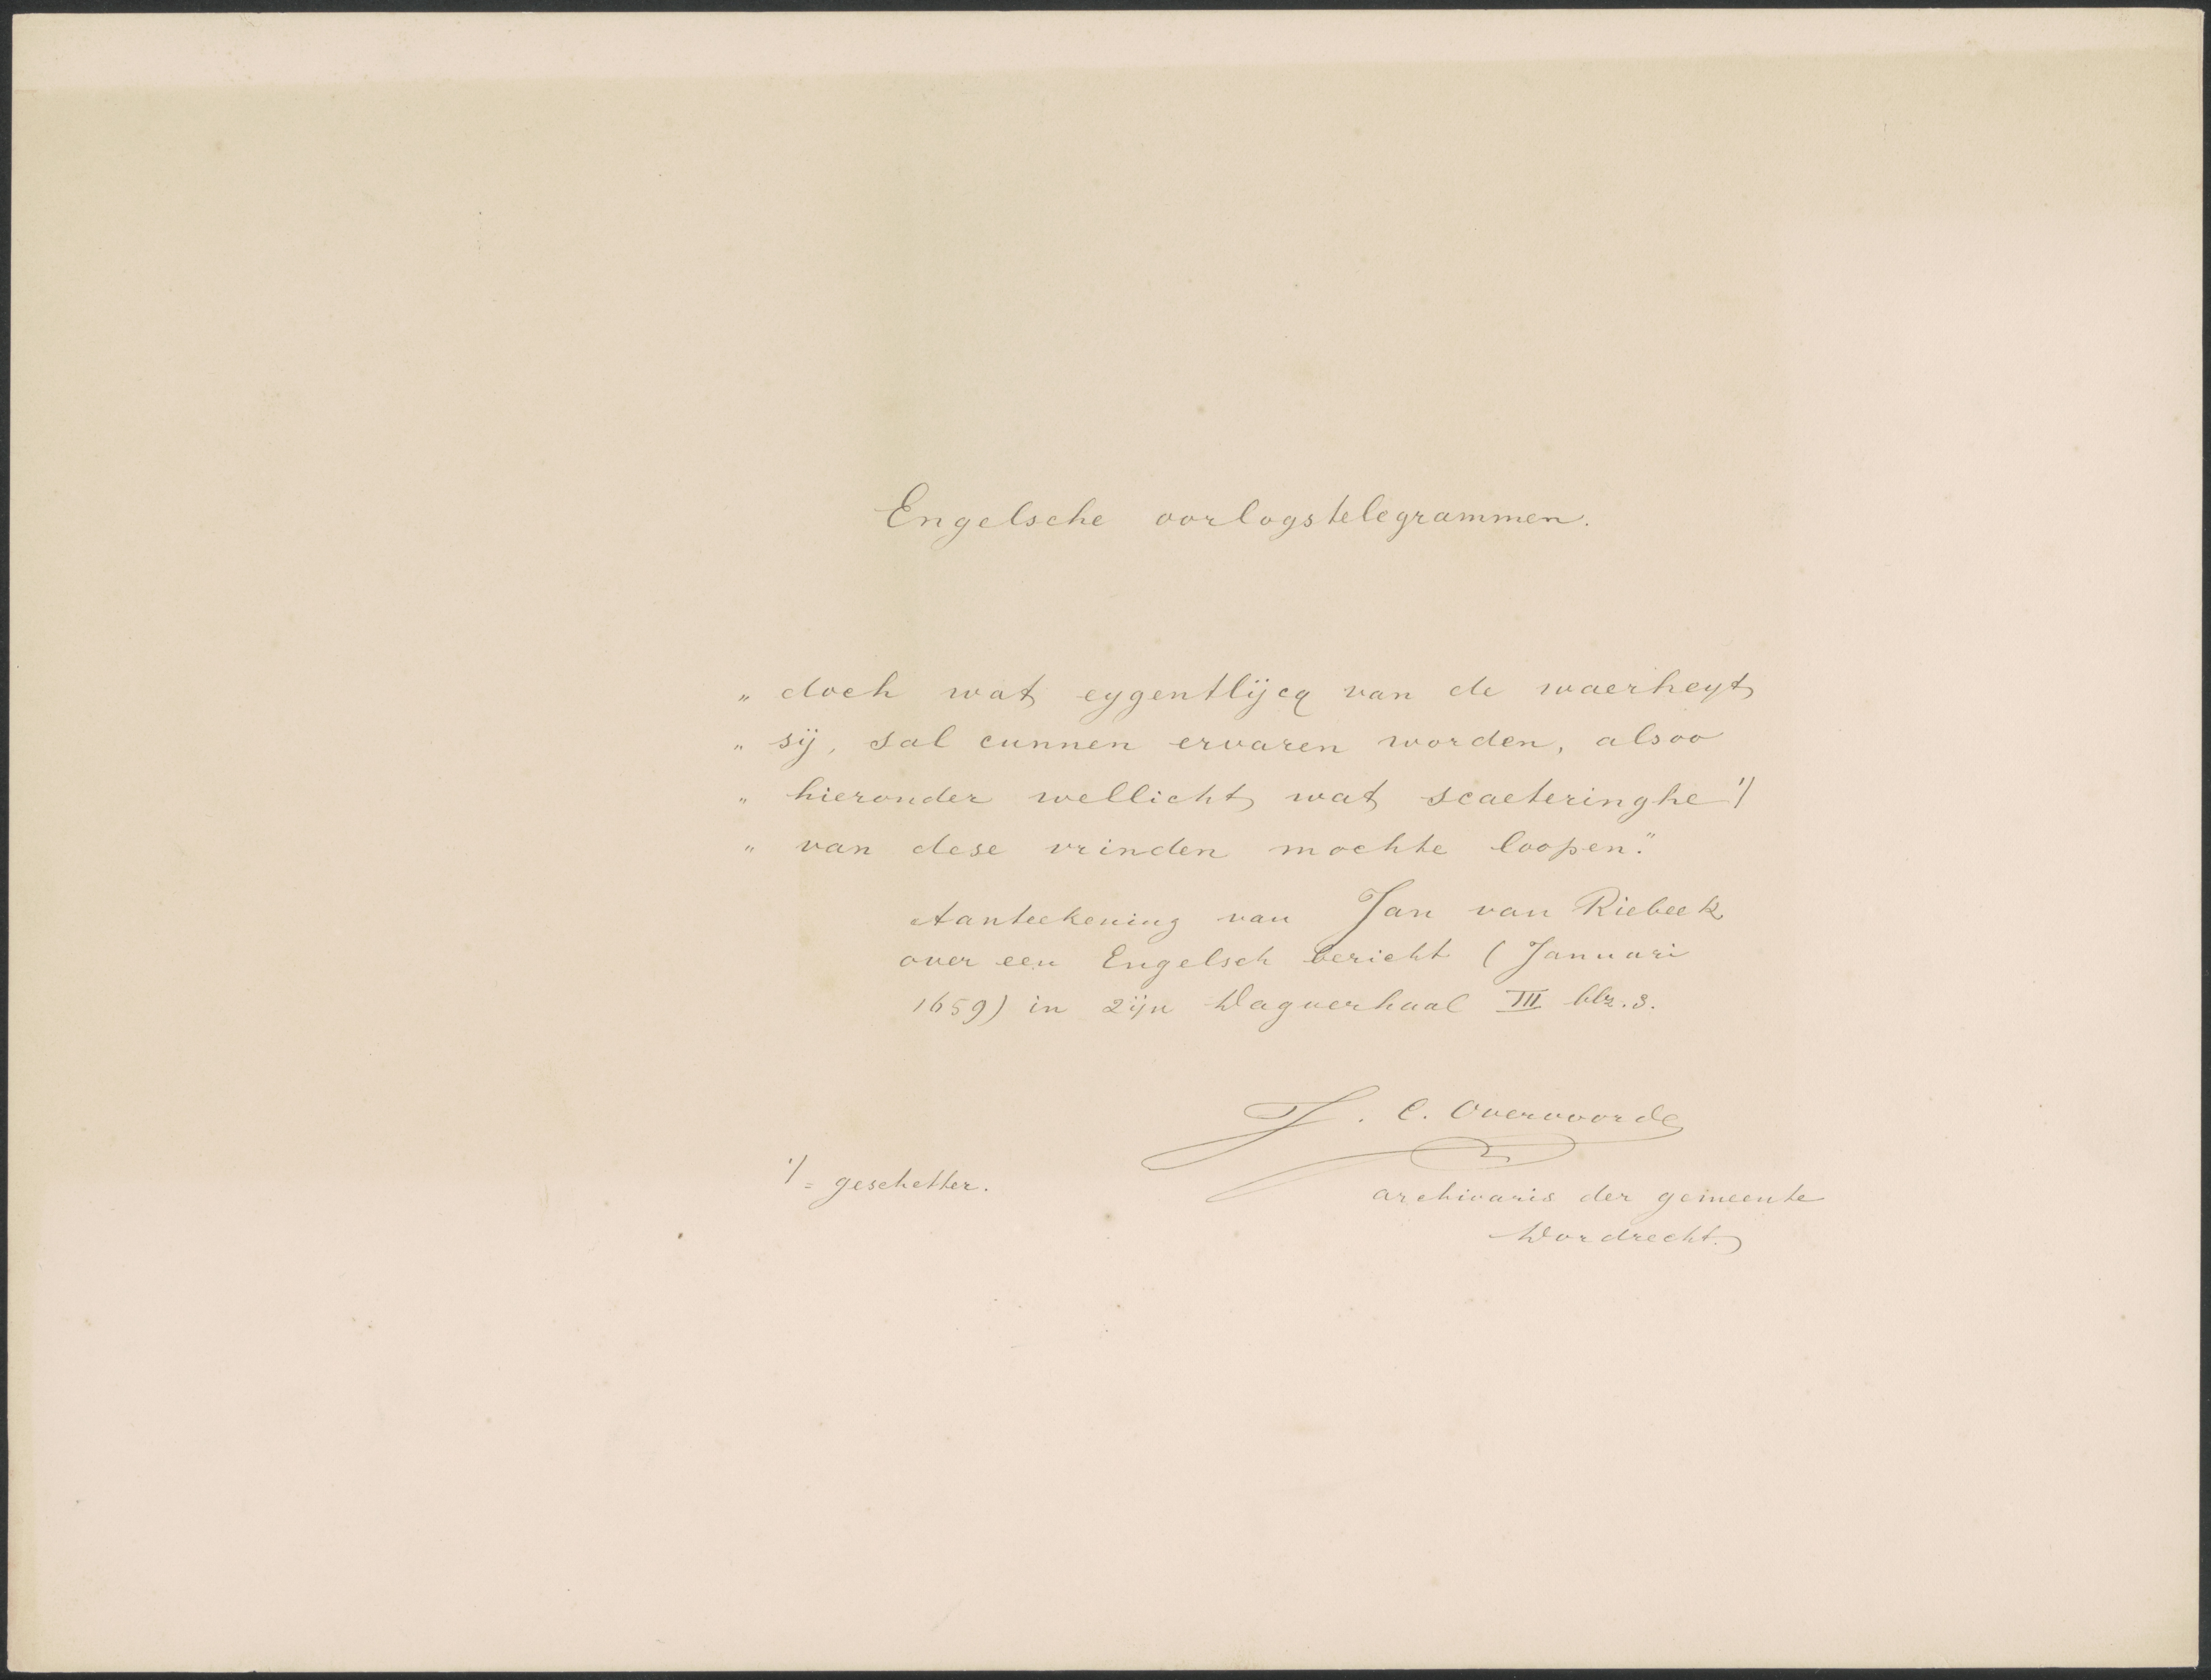 Engelsche oorlogstelegrammen.
„ doch wat eygentlijcq van de waerheyt
„ sij, sal cunnen ervaren worden, alsoo
„ hieronder wellicht wat scaeteringhe 1)
„ van dese vrinden mochte loopen."
Aanteekening van Jan van Riebeek
over een Engelsch bericht (Januari
1659) in zijn Dagverhaal III blz. 3.
J. C. Overvoorde
1) = geschetter.
archivaris der gemeente
Dordrecht.